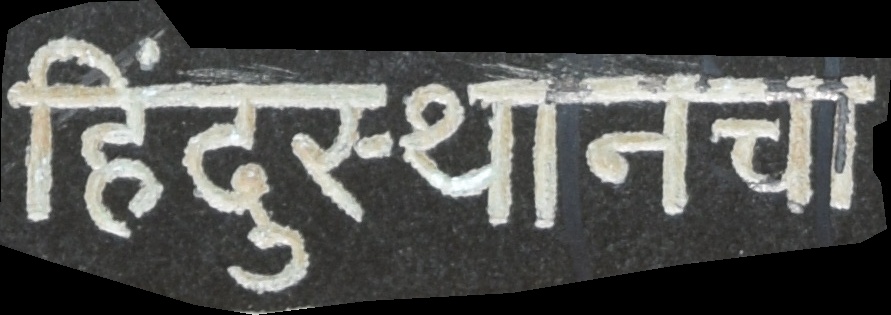 हिंदुस्थानचा